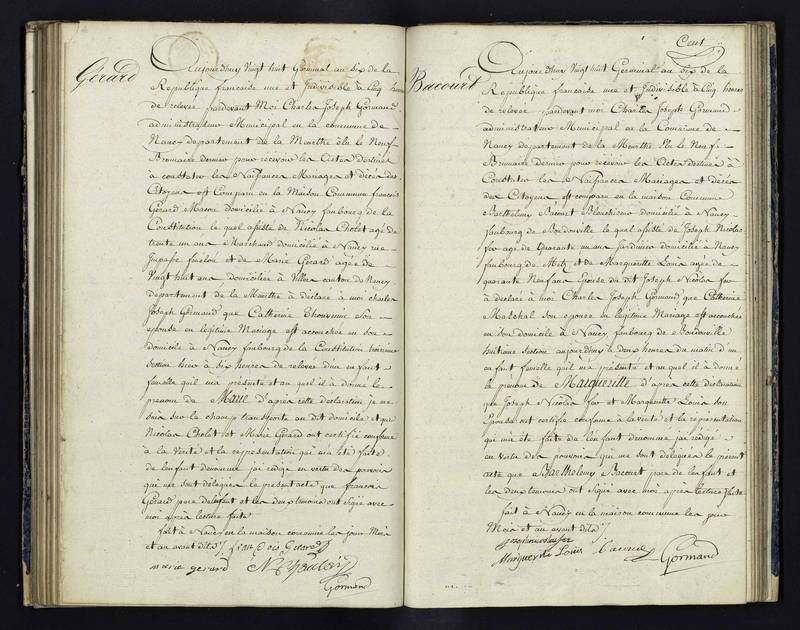 Gérard
Aujourdhuy Vingt huit Germinal an six de la
République francaise une et Indivisible à Cinq heures
de relevée pardevant Moi Charles Joseph Gormand
administrateur Municipal en la commune de
Nancy departement de la Meurthe élu le Neuf
Brumaire dernier pour recevoir les Actes destinés
à constater les Naissances Mariages et décès des
Citoyens est Comparu en la Maison Commune francois
Gérard Macon domicilié à Nancy faubourg de la
Constitution le quel assisté de Nicolas Cholet agé de
trente un ans Marchand domicilié à Nancy rue
et de Marie Gerard agée de
Vingt huit ans domiciliée à Villers canton de Nancy
departement de la Meurthe à déclaré à moi charles
Joseph Gormand que Catherine Thouvenin son
epouse en légitime Mariage est accouchée en son
domicile à Nancy faubourg de la Constitution troisieme
Section hier à Six heures de relevée d'un enfant
femelle qu'il m'a présenté et au quel il à donné le
prenom de Marie D'après cette déclaration je me
suis sur le champ transporté au dit domicile et que
Nicolas Cholet et Marie Gerard ont certifié conforme
à la Vérité et la représentation qui m'a été faite
de l'enfant denommé jai rédigé en vertu des pouvoirs
qui me sont délégués le present acte que francois
Gérard pere de lenfant et les deux témoins ont signé avec
moi après lecture faite
fait à Nancy en la maison commune les jour Mois
et an avant dits francois Gerard
marie gerard N. Chaulois
Gormand
Cent
Bacourt
Aujourdhuy Vingt huit Germinal an six de la
République francaise une et Indivisible à Cinq heures
de relevée pardevant moi Charles Joseph Gormand
administrateur Municipal en la Commune de
Nancy departement de la Meurthe élu le Neuf
Brumaire dernier pour recevoir les Actes destinés à
Constater les Naissances Mariages et décès
des Citoyens est comparu en la maison Commune
Barthelemy Bacourt Blanchisseur domicilié à Nancy
faubourg de Bondonville le quel assisté de Joseph Nicolas
fer agé de Quarante un ans Jardinier domicilié à Nancy
faubourg de Metz et de Margueritte Louis agée de
quarante Neuf ans Epouse du dit Joseph Nicolas fer
à déclaré à moi Charles Joseph Gormand que Catherine
Maschal son epouse en légitime Mariage est accouchée
en son domicile à Nancy faubourg de Bondonville
huitieme Section aujourdhuy à deux heures du matin d'un
enfant femelle qu'il m'a présenté et au quel il à donné
le prenom de Margueritte d'après cette déclaration
que Joseph Nicolas fer et Margueritte Louis son
epouse ont certifié conforme à la verité et la représentation
qui m'a été faite de l'enfant denommé jai rédigé
en vertu des pouvoirs qui me sont délégués le présent
acte que Barthelemy Bacourt pere de lenfant et
les deux témoins ont signé avec moi après lecture faite
fait à Nancy en la maison commune les jour
Mois et an avant dits
joseph nicolas fer
Marguerite Louis Bacourt Gormand